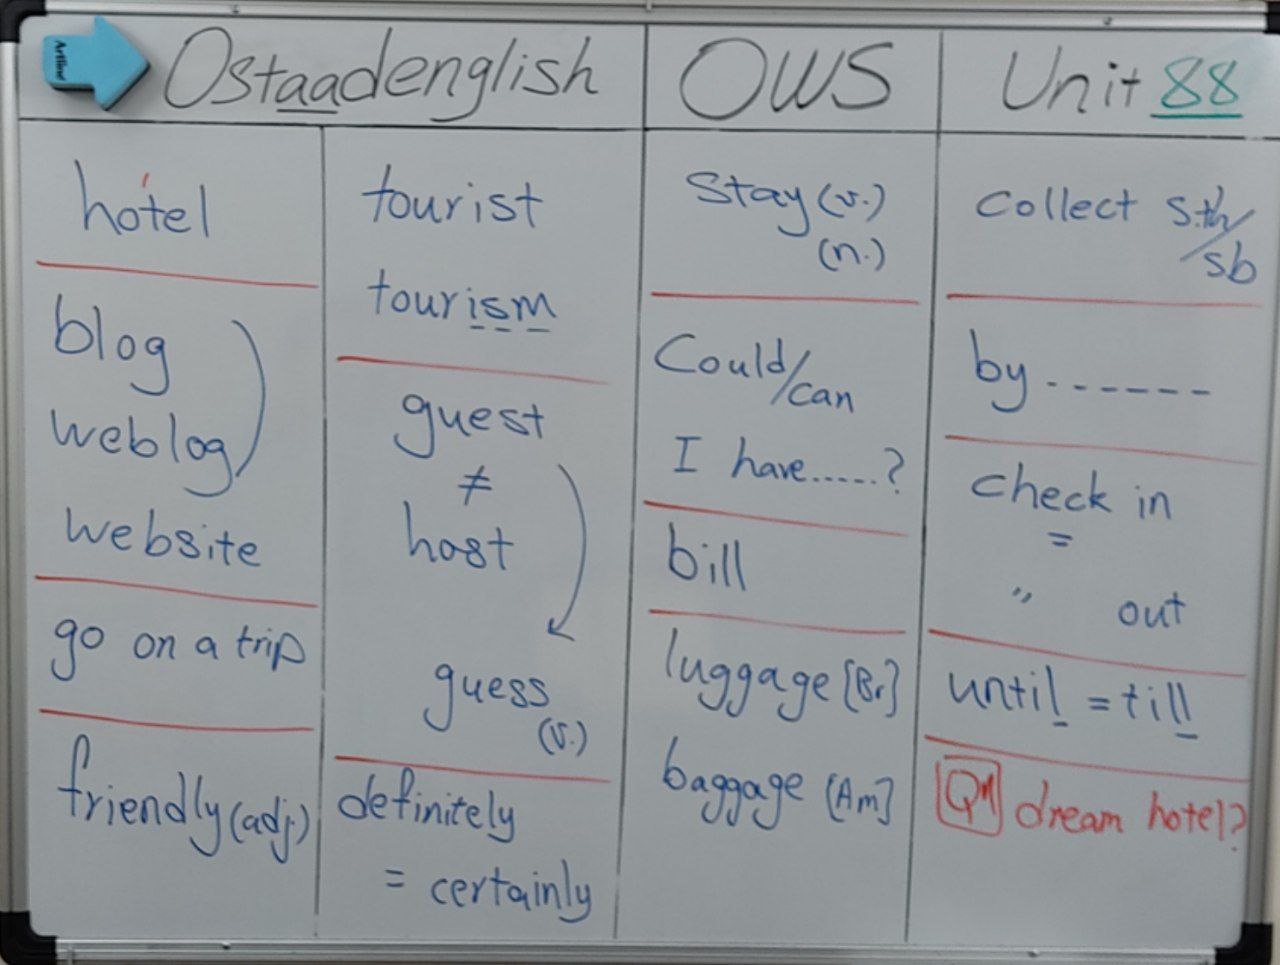 Artline
Ostaadenglish
OWS
Unit 88
hotel
blog
weblog
website
go on a trip
friendly (adj.)
tourist
tourism
guest
≠
host
guess
(v.)
definitely
= certainly
Stay (v.)
(n.)
Could/can
I have......?
bill
luggage [Br]
baggage [Am]
collect s.th/
sb
by ------
check in
=
" out
until = till
Qn dream hotel?